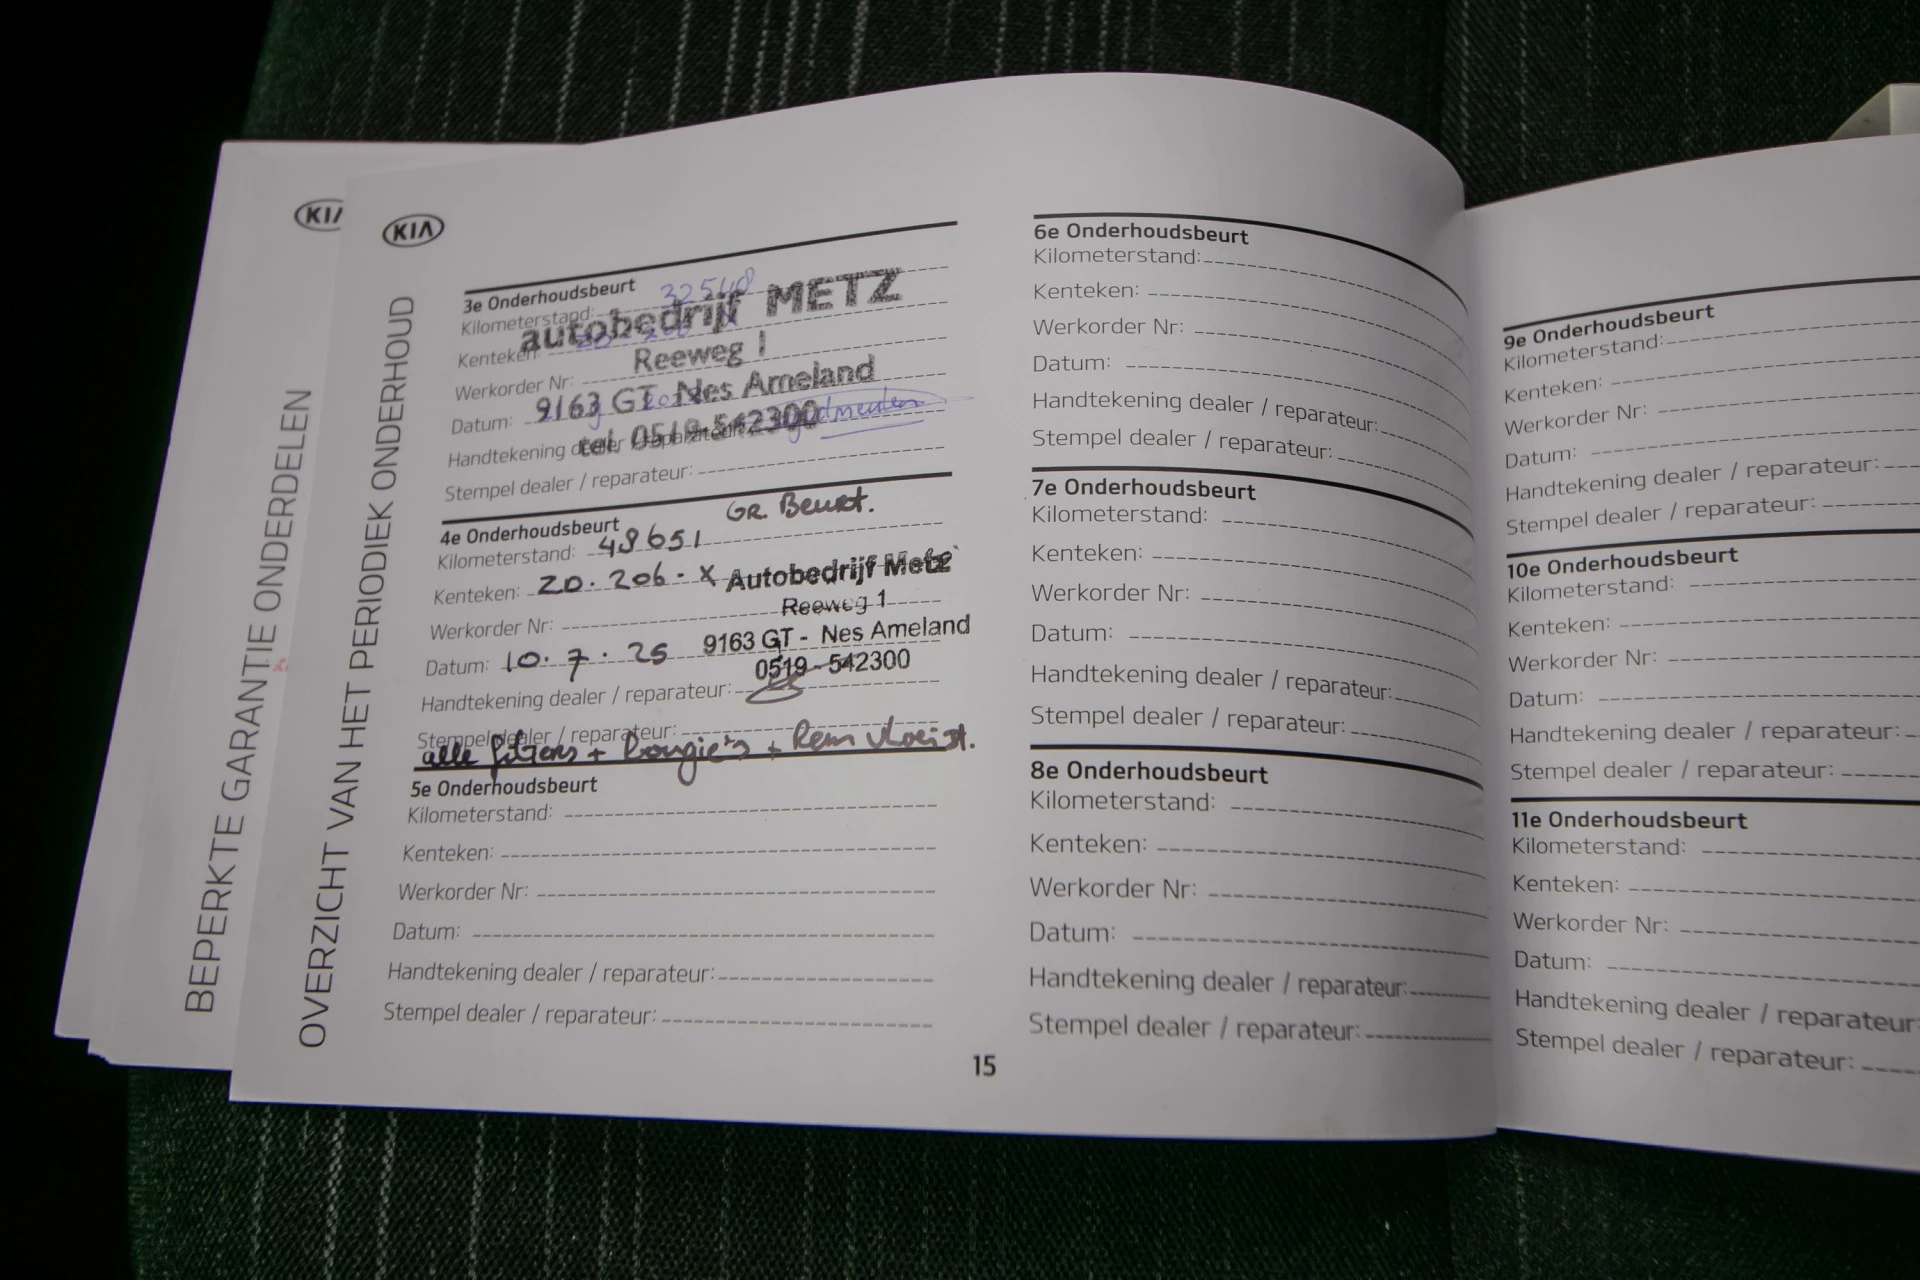 KIA
BEPERKTE GARANTIE ONDERDELEN
KIA
OVERZICHT VAN HET PERIODIEK ONDERHOUD
3e Onderhoudsbeurt
Kilometerstand:
autobedrijf METZ
Kenteken:
Reeweg 1
Werkorder Nr:
9163 GT Nes Ameland
Datum:
tel. 0519-542300
Handtekening dealer / reparateur:
Stempel dealer / reparateur:
GR. Beurt.
4e Onderhoudsbeurt
Kilometerstand: 49651
Kenteken: 20.206.X
Autobedrijf Metz
Reeweg 1
Werkorder Nr:
9163 GT - Nes Ameland
Datum: 10.7.25
0519 - 542300
Handtekening dealer / reparateur:
Stempel dealer / reparateur:
alle filters + Bougie's + Rem vloeist.
5e Onderhoudsbeurt
Kilometerstand:
Kenteken:
Werkorder Nr:
Datum:
Handtekening dealer / reparateur:
Stempel dealer / reparateur:
6e Onderhoudsbeurt
Kilometerstand:
Kenteken:
Werkorder Nr:
Datum:
Handtekening dealer / reparateur:
Stempel dealer / reparateur:
7e Onderhoudsbeurt
Kilometerstand:
Kenteken:
Werkorder Nr:
Datum:
Handtekening dealer / reparateur:
Stempel dealer / reparateur:
8e Onderhoudsbeurt
Kilometerstand:
Kenteken:
Werkorder Nr:
Datum:
Handtekening dealer / reparateur:
Stempel dealer / reparateur:
15
9e Onderhoudsbeurt
Kilometerstand:
Kenteken:
Werkorder Nr:
Datum:
Handtekening dealer / reparateur:
Stempel dealer / reparateur:
10e Onderhoudsbeurt
Kilometerstand:
Kenteken:
Werkorder Nr:
Datum:
Handtekening dealer / reparateur:
Stempel dealer / reparateur:
11e Onderhoudsbeurt
Kilometerstand:
Kenteken:
Werkorder Nr:
Datum:
Handtekening dealer / reparateur:
Stempel dealer / reparateur: